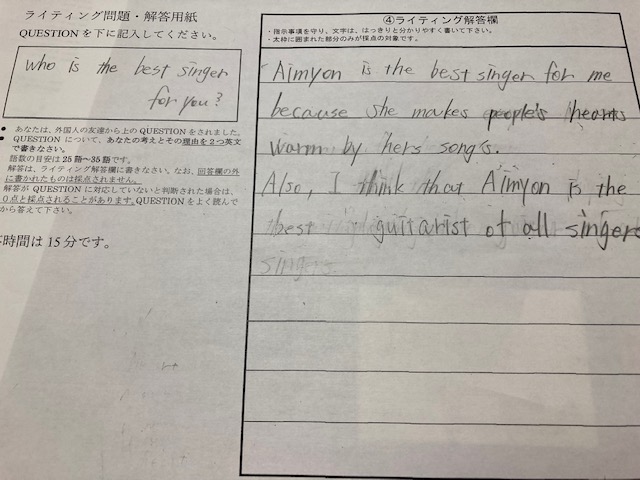 ライティング問題・解答用紙
QUESTIONを下に記入してください。
who is the best singer
for you?
● あなたは、外国人の友達から上の QUESTION をされました。
● QUESTION について、あなたの考えとその理由を2つ英文
で書きなさい。
語数の目安は 25 語～35 語です。
解答は、ライティング解答欄に書きなさい。なお、回答欄の外
に書かれたものは採点されません。
解答が QUESTION に対応していないと判断された場合は、
0点と採点されることがあります。QUESTION をよく読んで
から答えて下さい。
時間は 15 分です。
④ライティング解答欄
・指示事項を守り、文字は、はっきりと分かりやすく書いて下さい。
・太枠に囲まれた部分のみが採点の対象です。
Aimyon is the best singer for me
because she makes people's hearts
warm by hers song's.
Also, I think that Aimyon is the
best guitarist of all singers
singers